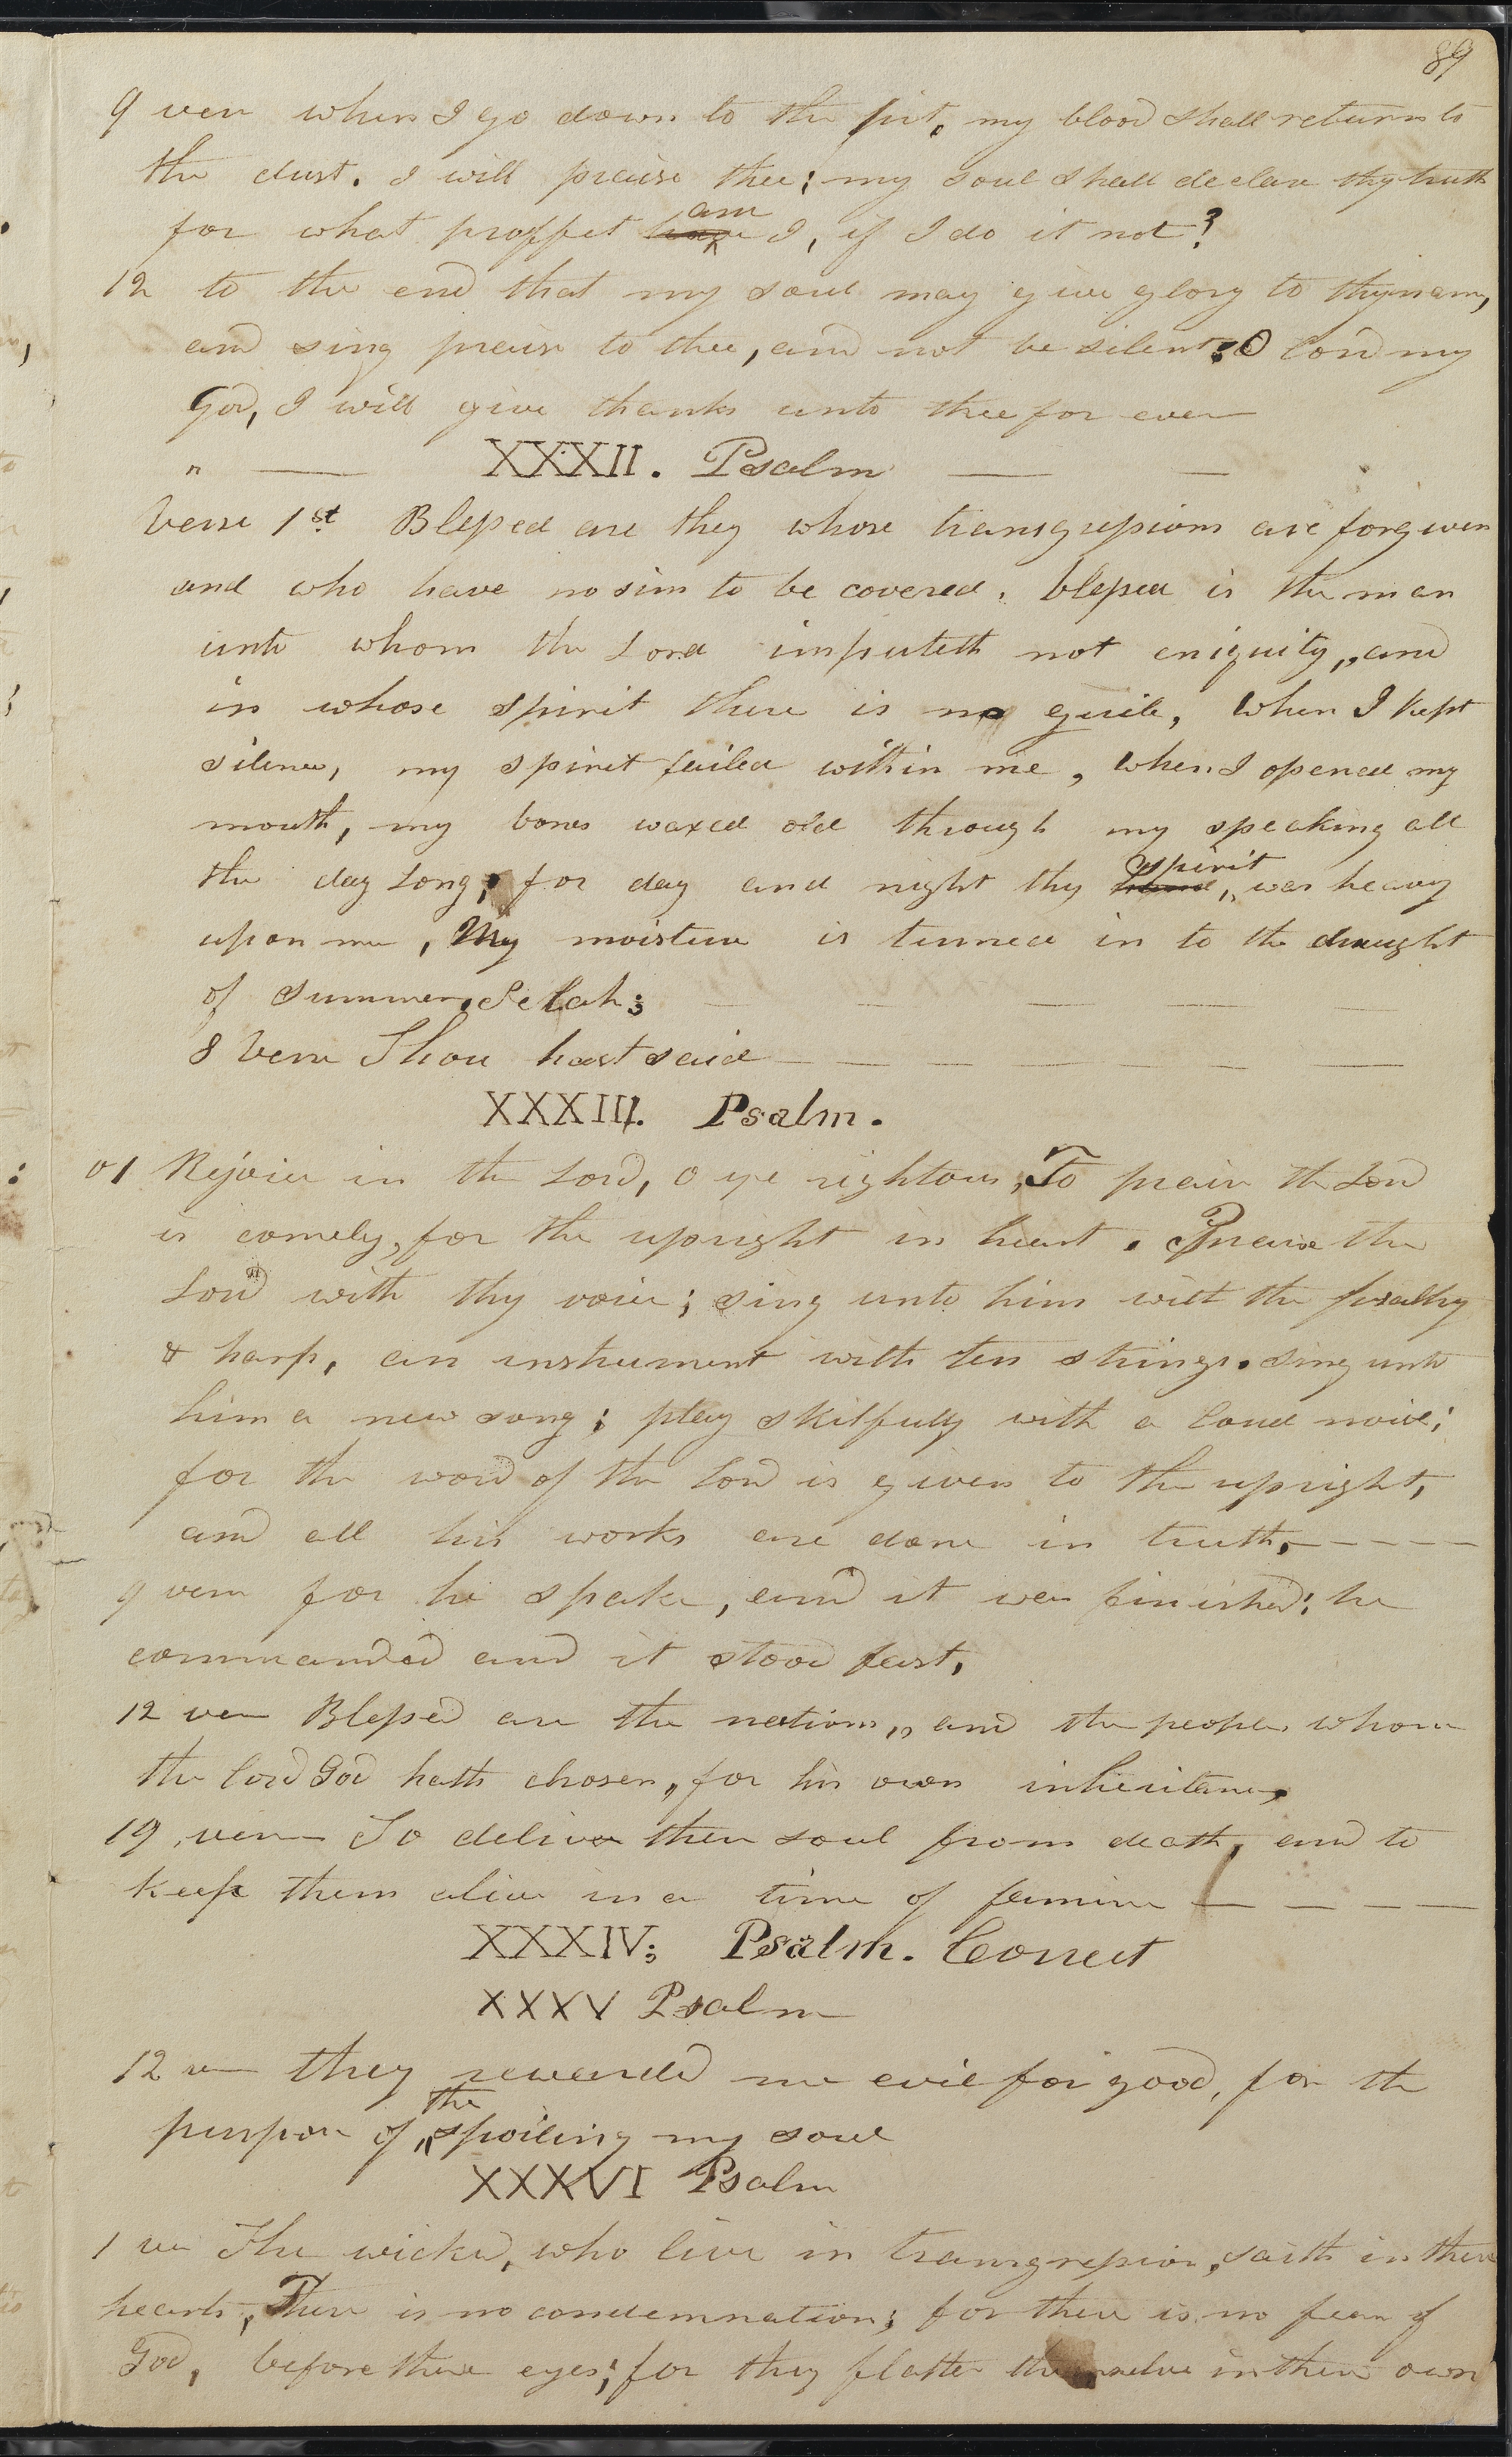 89
9 vers when I go down to the pit, my blood shall return to
the dust. I will praise thee; my soul shall declare thy truth
for what proffet have am I, if I do it not?
12 to the end that my soul may give glory to thy name,
and sing praise to thee, and not be silent: O lord my
God, I will give thanks unto thee for ever
" — XXXII. Psalm — —
Verse 1st Blessed are they whose transgressions are forgiven
and who have no sins to be covered. blessed is the man
unto whom the Lord imputeth not eniquity,, and
in whose spirit there is no guile, when I kept
silence, my spirit failed within me, when I opened my
mouth, my bones waxed old through my speaking all
the day long; for day and night thy hand,, spirit was heavy
upon me, My moisture is turned in to the draught
of summer, Selah;
8 Verse Thou hast said — — — — — —
XXXIII. Psalm.
v1 Rejoice in the Lord, O ye rightous; To praise the Lord
is comely, for the upright in heart. Praise the
Lord with thy voice; sing unto him with the psaltry
& harp, an instrument with ten strings. sing unto
him a new song; play skilfully with a loud noise;
for the word of the Lord is given to the upright,
and all his works are done in truth, — — — —
9 vers for he spake, and it was finished; he
commanded and it stood fast,
12 vers Blessed are the nations,, and the people, whom
the lord God hath chosen,, for his own inheritance,
19, vers— To deliver their soul from death, and to
keep them alive in a time of famine — — — —
XXXIV; Psalm. Correct
XXXV Psalm
12 vers they rewarded me evil for good, for the
purpose of,, the spoiling my soul
XXXVI Psalm
1 ver The wicked, who live in transgression, saith in their
hearts, There is no condemnation; for there is no fear of
God, before there eyes; for they flatter themselve in their own